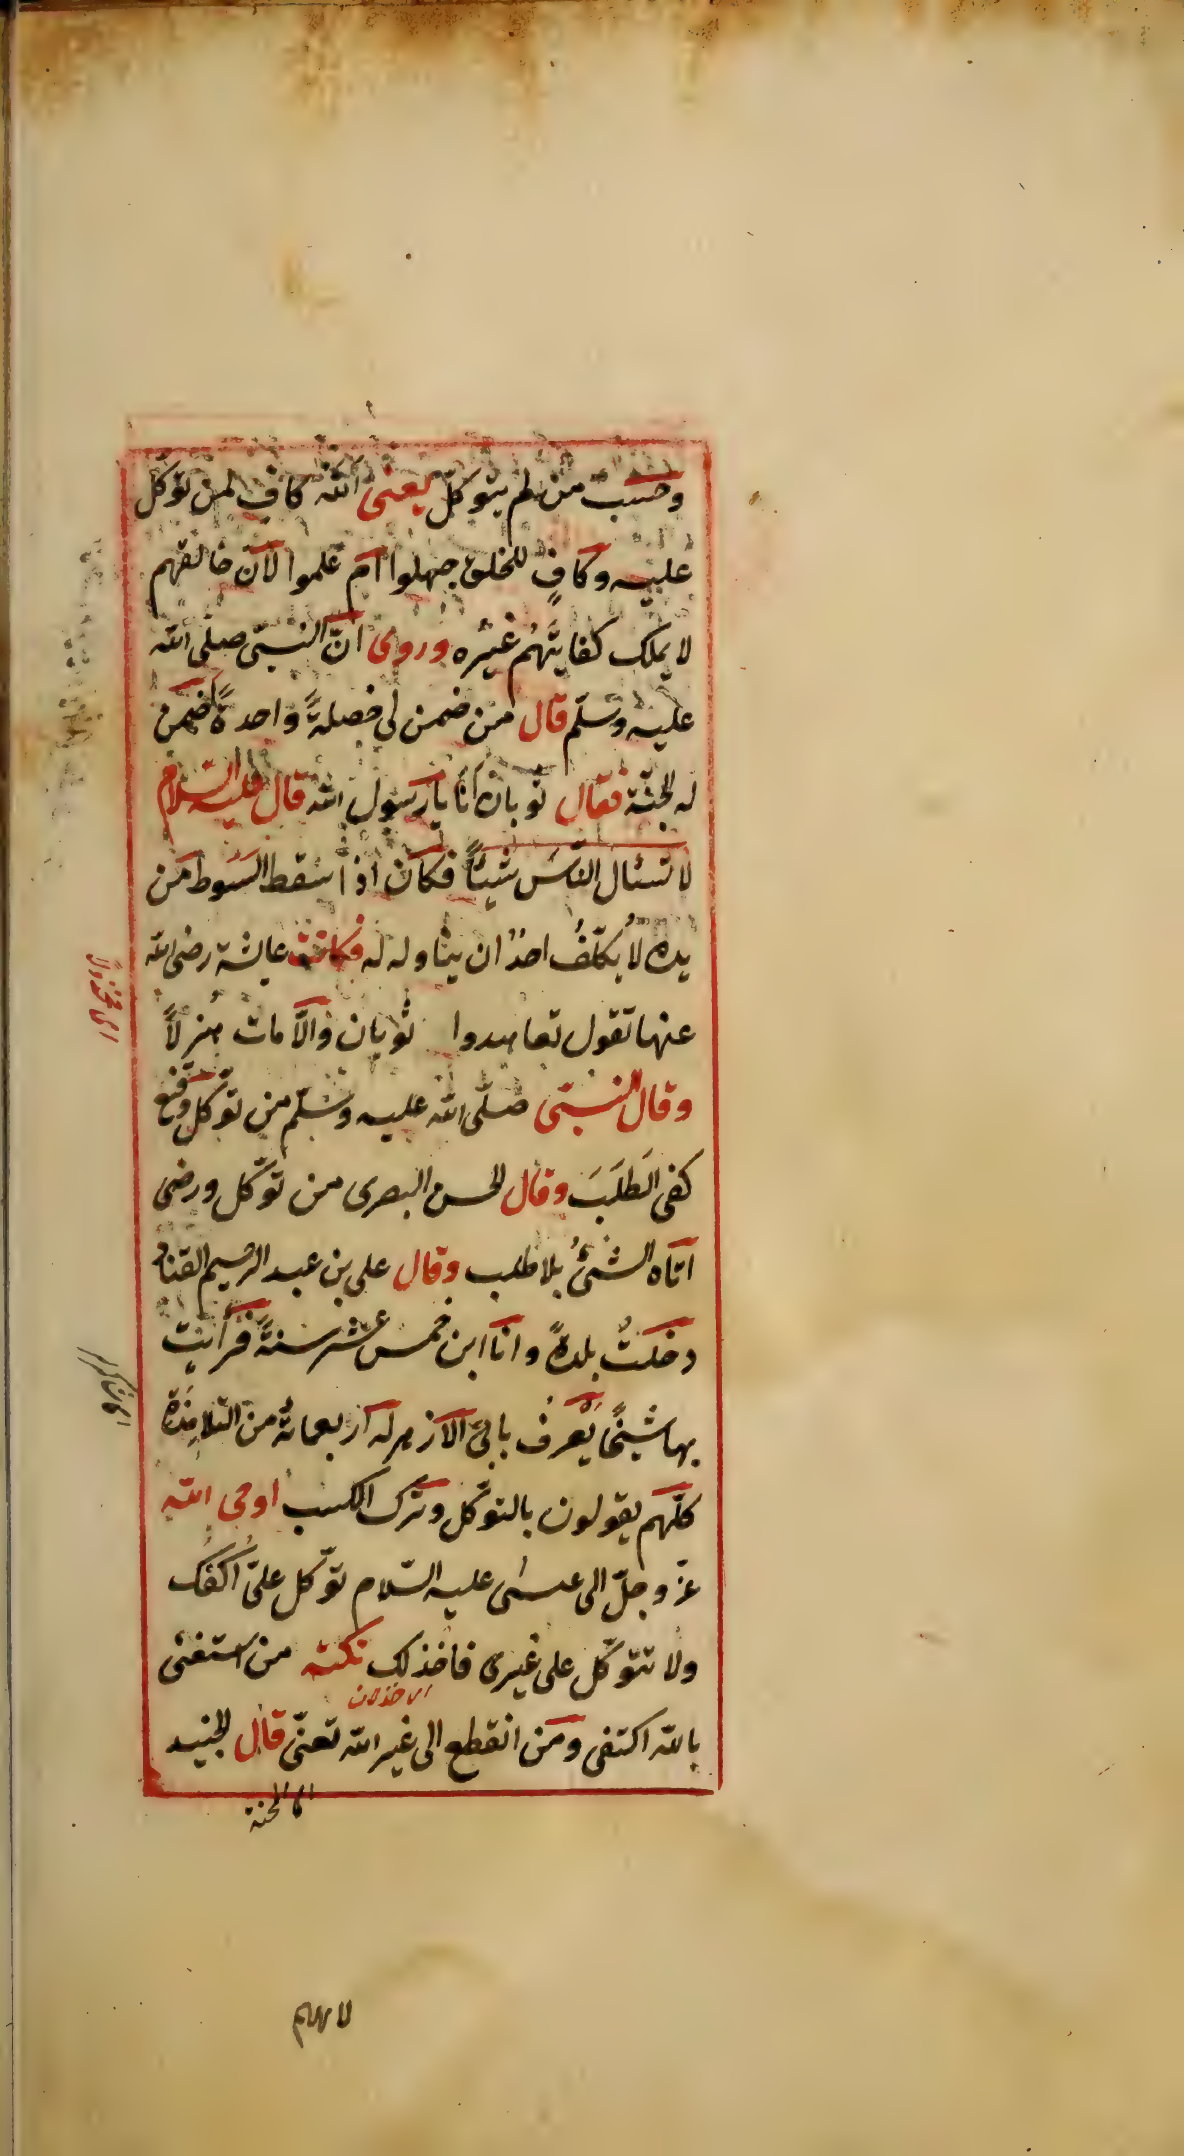 وحسب من لم يتوكل يعنى الله كاف لمن توكل
عليه وكافٍ للخلق جهلوا ام علموا لان خالقهم
لا يملك كفايتهم غيره وروى انّ النبىّ صلى الله
عليه وسلّم قال من ضمن لى خصلةً واحدةً اضمن
له الجنّة فقال ثوبان أنا يا رسول الله قال عليه السلام
لا تسئال النّاسَ شيئاً فكان اذا سقط السّوط من
يده لا يكلّفُ احدٌ ان يناوله له فكانت عايشة رضى الله
عنها تقول تعاهدوا ثوبان والّا مات هزلاً
وقال النبىّ صلّى الله عليه وسلّم من توّكل وقنع
كفى الطَلَبَ وقال الحسن البصرى من توّكل ورضى
اتاه الشئُ بلا طلب وقال على بن عبد الرحيم القناد
دخلتُ بلدةً وانا ابن خمس عشر سنةً فرأيت
بها شيخًا يُعرفُ بابىّ الازهر له اربعمائة من التلامِذة
كلّهم يقولون بالتوّكل وترك الكسب اوحى الله
عزّ وجلّ الى عيسٰى عليه السّلام توّكل علىّ اُكفك
ولا تتوّكل على غيرى فاخذلك نكته من استغنى
بالله اكتفى ومن انقطع الى غير الله تعنّى قال الجنيد